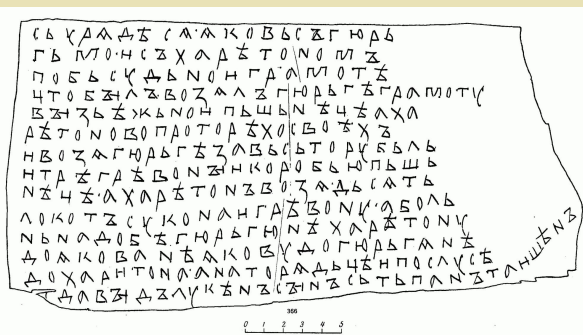 сьурѧдѣсѧ·ѧковьсъгюрь
гьмо·исъхарѣтономъ
побьсудьноиграмотѣ
цтобъıлъвозѧлъгюрьгѣграмоту
въıзѣжьноипьшьнѣцѣаха
рѣтоновопроторѣхосвоѣхъ
ивозѧгюрьгѣзавьсьторубьль
итрѣгрѣвонъıикоробьюпьшь
нѣцѣ·ахарѣтонъвозѧ·дьсѧть
локотъсуконаигрѣвону·аболь
ньнадобѣ·гюрьгюнѣхарѣтону
доѧкованѣѧковудогюрьгѧнѣ
дохаритона·анаторѧдьцѣипослусѣ
давъıдълукѣнъсъıнъсьтьпанътаишѣнъ
366
0 1 2 3 4 5